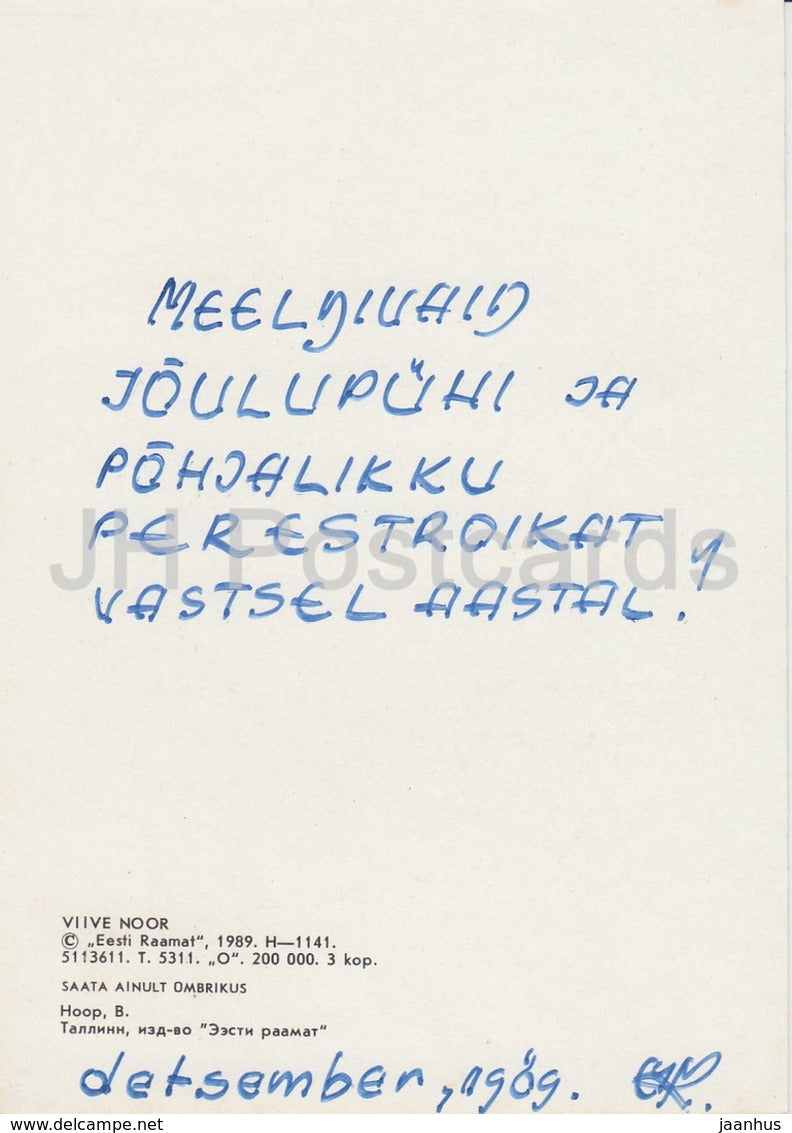 MEELDIVAID
JÕULUPÜHI JA
PÕHJALIKKU
PERESTROIKAT
VASTSEL AASTAL!
JH Postcards
VIIVE NOOR
© „Eesti Raamat“, 1989. H—1141.
5113611. T. 5311. „O“. 200 000. 3 kop.
SAATA AINULT ÜMBRIKUS
Ноор, В.
Таллинн, изд-во "Ээсти раамат"
detsember, 1989.
www.delcampe.net
jaanhus